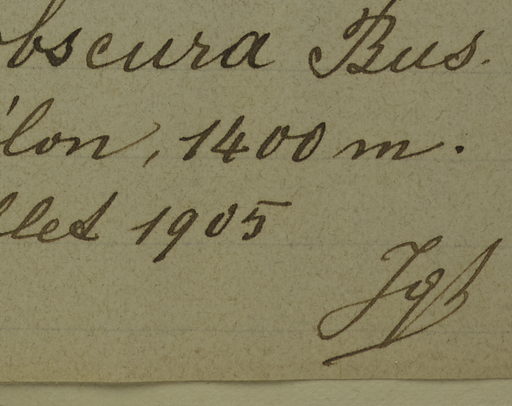 obscura Bus.
ilon, 1400 m.
llet 1905